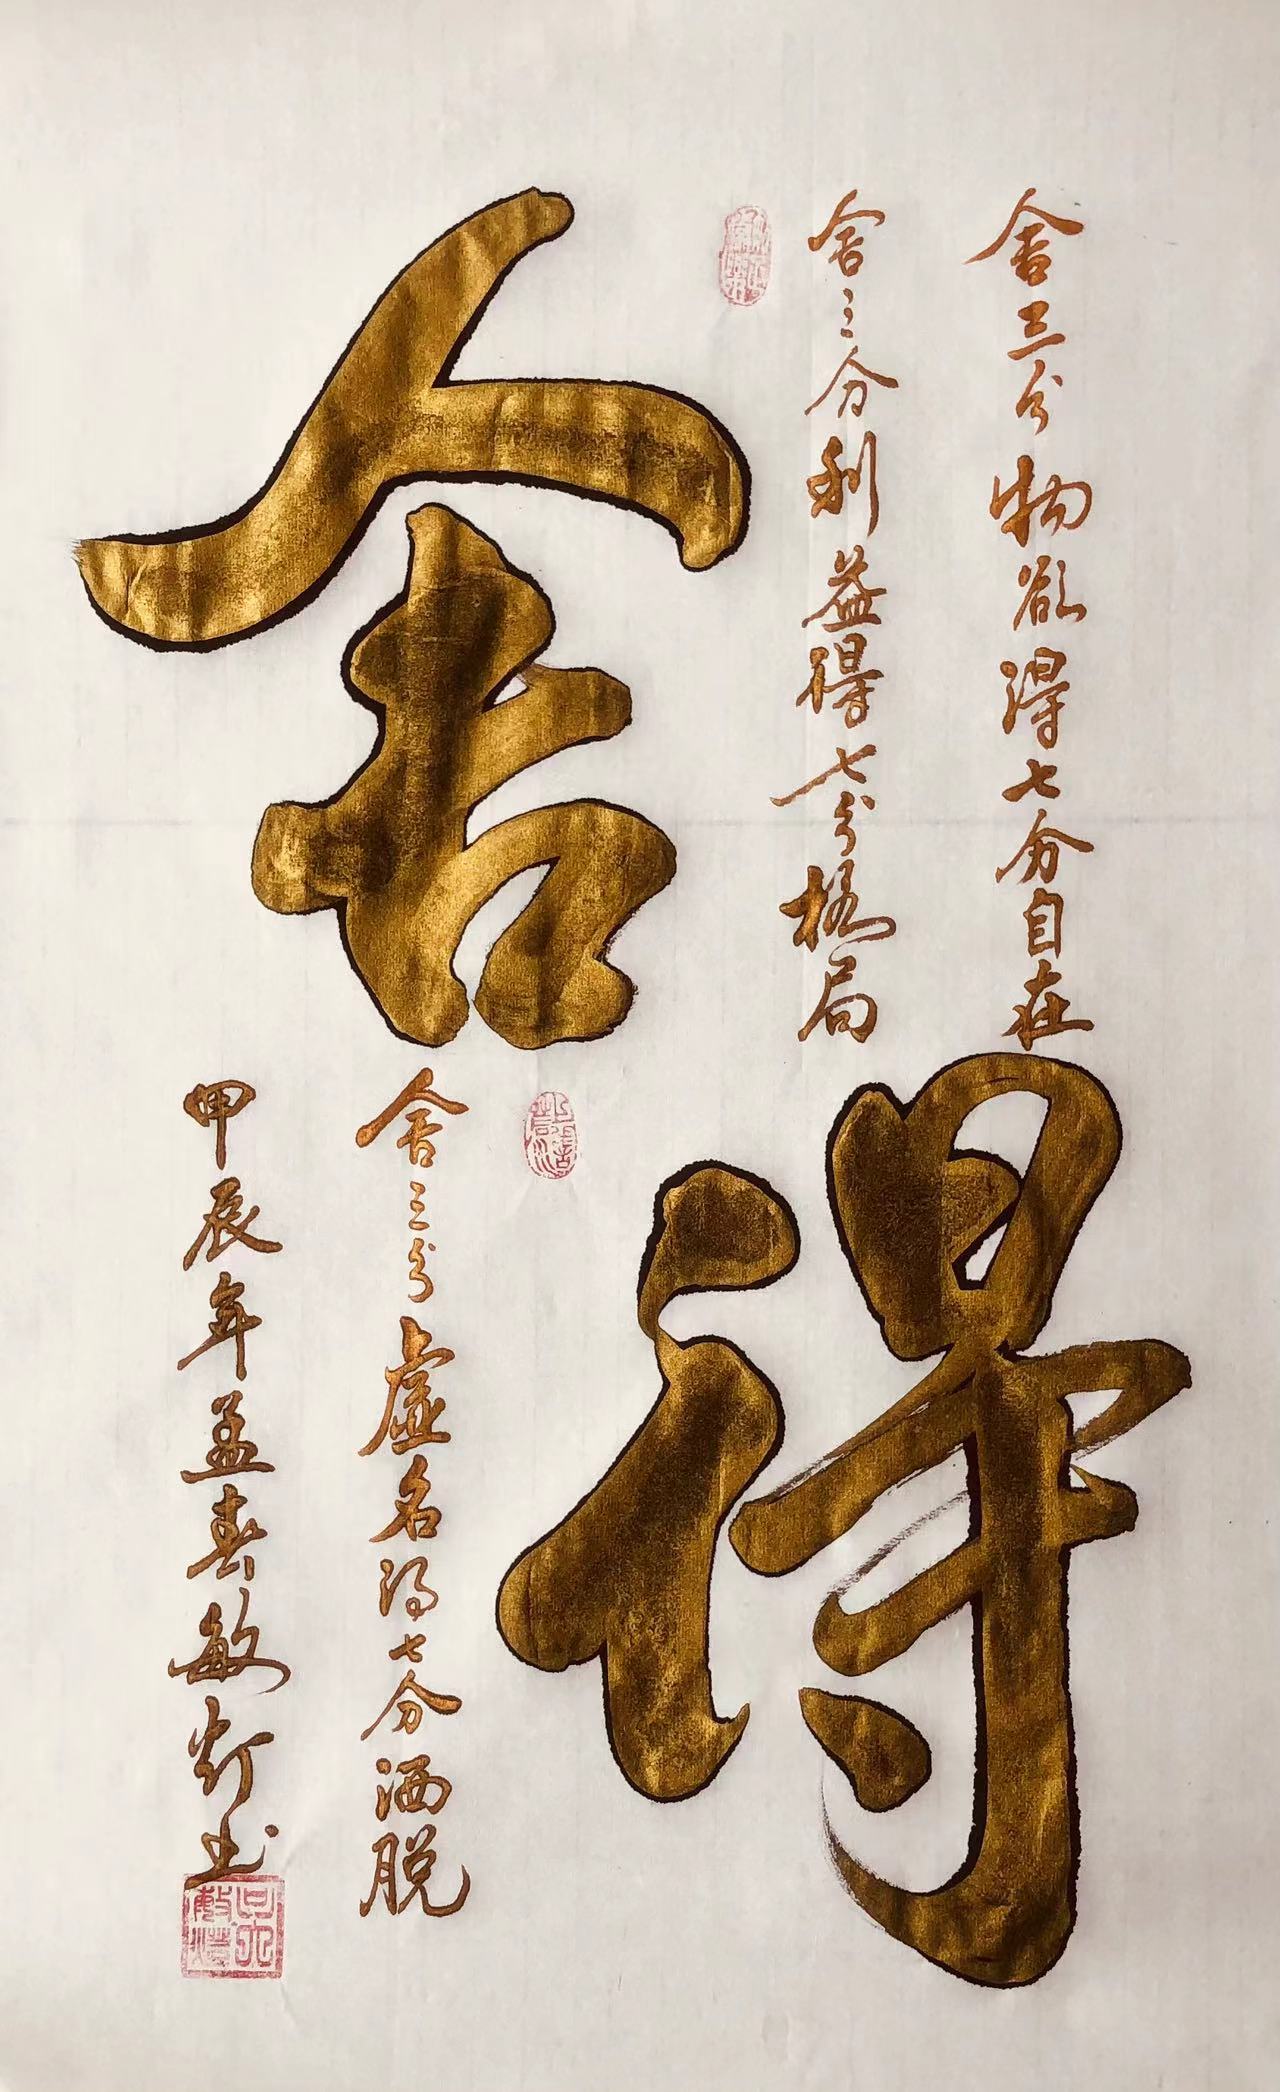 舍得
舍三分物欲得七分自在
舍三分利益得七分格局
舍三分虚名得七分洒脱
甲辰年孟春敏灯书